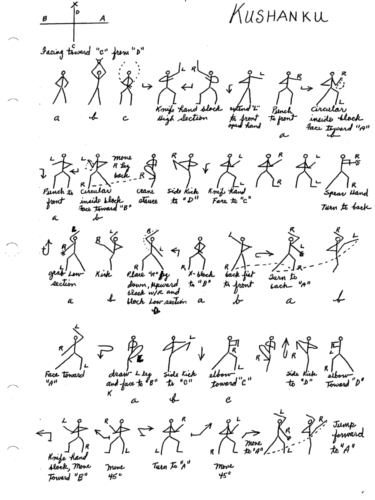 KUSHANKU
D
B A
C
Facing toward "C" from "D"
L R L R L R
a b c Knife hand block High section extend "L" to front open hand Punch to front Circular inside block Face toward "A"
a b
Move R leg back
Punch to front Circular inside block Face toward "B" crane stance Side Kick to "D" Knife hand Face to "C" Spear Hand Turn to back
a b
grab Low section Kick Place "R" down, Upward block w/R and block Low section X-block to "D" back fist to front Turn to back "A"
a b a b a b
Face toward "A" draw L leg and face to "B" Side Kick to "C" elbow toward "C" Side Kick to "D" elbow Toward "D"
a b c
Knife hand block, Move Toward "B" Move 45° Turn to "A" Move 45° Move to "A" Jump forward to "A"